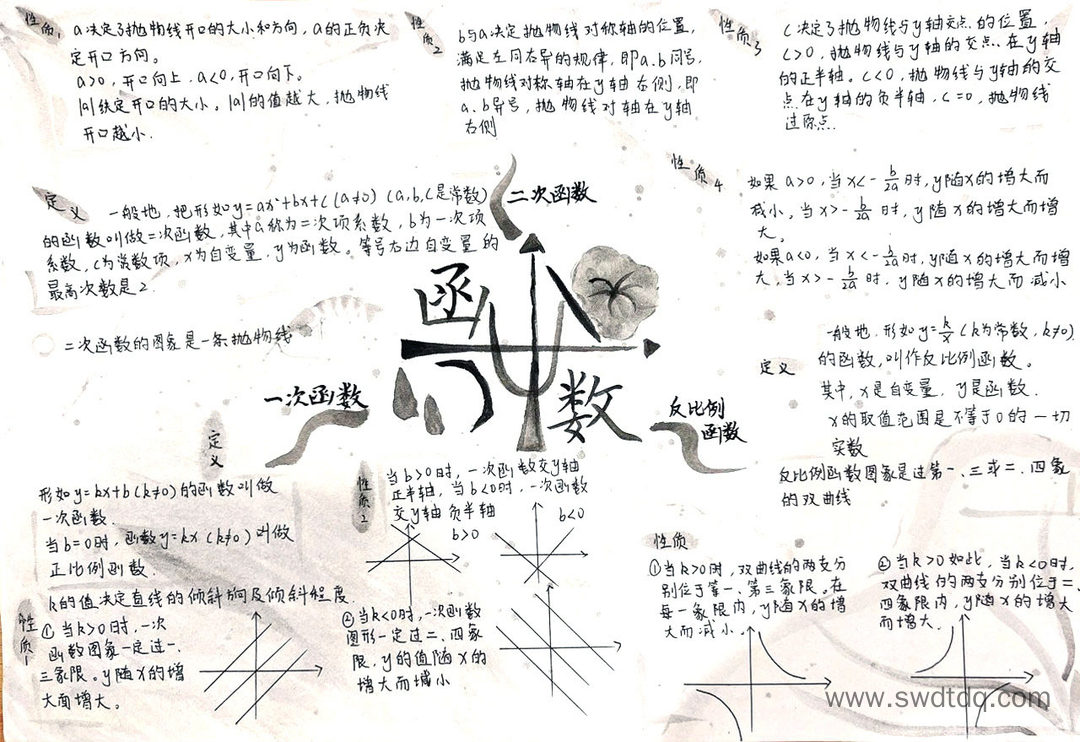 性质1
a决定了抛物线开口的大小和方向，a的正负决
定开口方向。
a>0，开口向上，a<0，开口向下。
|a|决定开口的大小。|a|的值越大，抛物线
开口越小.
性质2
b与a决定抛物线对称轴的位置，
满足左同右异的规律，即a.b同号，
抛物线对称轴在y轴左侧，即
a.b异号，抛物线对轴在y轴
右侧
性质3
c决定了抛物线与y轴交点的位置，
c>0，抛物线与y轴的交点、在y轴
的正半轴。c<0，抛物线与y轴的交
点在y轴的负半轴，c=0，抛物线
过原点.
性质4
如果a>0，当x<-b/2a时，y随x的增大而
减小。当x>-b/2a时，y随x的增大而增
大。
如果a<0，当x<-b/2a时，y随x的增大而增
大，当x>-b/2a时，y随x的增大而减小
二次函数
定义
一般地，把形如y=ax²+bx+c(a≠0)(a,b,c是常数)
的函数叫做二次函数，其中a称为二次项系数，b为一次项
系数，c为常数项，x为自变量，y为函数。等号右边自变量的
最高次数是2.
二次函数的图象是一条抛物线
函
数
一次函数
反比例
函数
定义
一般地.形如y=k/x(k为常数，k≠0)
的函数，叫作反比例函数。
其中，x是自变量，y是函数.
x的取值范围是不等于0的一切
实数
反比例函数图象是过第一、三或二、四象
的双曲线
定义
形如y=kx+b(k≠0)的函数叫做
一次函数.
当b=0时，函数y=kx(k≠0)叫做
正比例函数.
性质2
当b>0时，一次函数交y轴
正半轴，当b<0时，一次函数
交y轴负半轴
b>0
b<0
性质1
k的值决定直线的倾斜方向及倾斜程度.
①当k>0时，一次
函数图象一定过一.
三象限。y随x的增
大而增大。
②当k<0时，一次函数
图形一定过二、四象
限，y的值随x的
增大而减小
性质
①当k>0时，双曲线的两支分
别位于第一、第三象限。在
每一象限内，y随x的增
大而减小。
②当k>0如此，当k<0时，
双曲线的两支分别位于二
四象限内，y随x的增大
而增大.
www.swdtdq.com